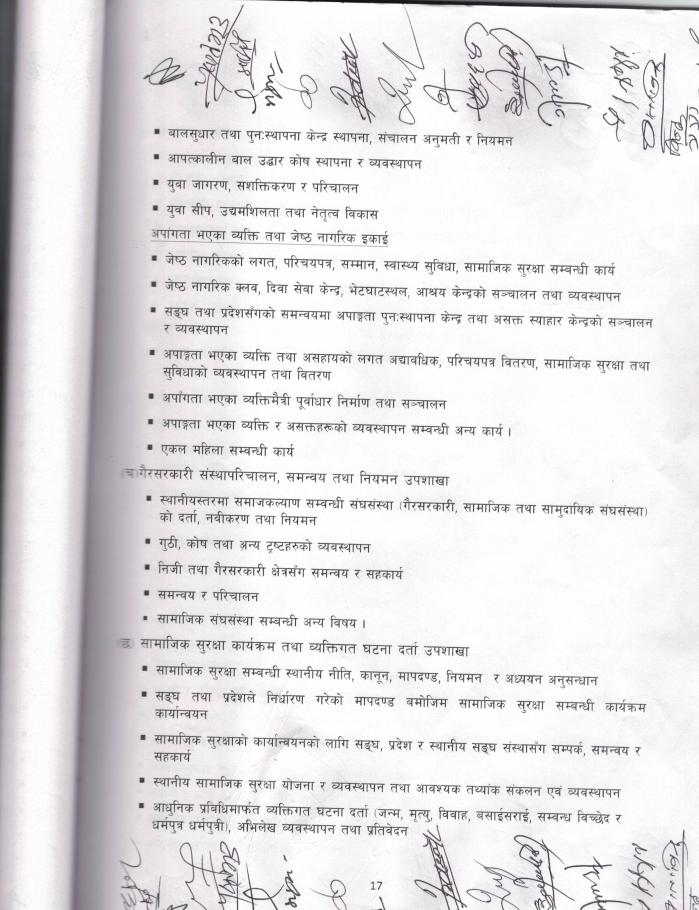 ▪ बालसुधार तथा पुन:स्थापना केन्द्र स्थापना, संचालन अनुमती र नियमन
▪ आपत्कालीन बाल उद्धार कोष स्थापना र व्यवस्थापन
▪ युवा जागरण, सशक्तिकरण र परिचालन
▪ युवा सीप, उद्यमशिलता तथा नेतृत्व विकास
अपांगता भएका व्यक्ति तथा जेष्ठ नागरिक इकाई
▪ जेष्ठ नागरिकको लगत, परिचयपत्र, सम्मान, स्वास्थ्य सुविधा, सामाजिक सुरक्षा सम्बन्धी कार्य
▪ जेष्ठ नागरिक क्लव, दिवा सेवा केन्द्र, भेटघाटस्थल, आश्रय केन्द्रको सञ्चालन तथा व्यवस्थापन
▪ सङ्घ तथा प्रदेशसँगको समन्वयमा अपाङ्गता पुन:स्थापना केन्द्र तथा असक्त स्याहार केन्द्रको सञ्चालन
र व्यवस्थापन
▪ अपाङ्गता भएका व्यक्ति तथा असहायको लगत अद्यावधिक, परिचयपत्र वितरण, सामाजिक सुरक्षा तथा
सुविधाको व्यवस्थापन तथा वितरण
▪ अपाँगता भएका व्यक्तिमैत्री पूर्वाधार निर्माण तथा सञ्चालन
▪ अपाङ्गता भएका व्यक्ति र असक्तहरूको व्यवस्थापन सम्बन्धी अन्य कार्य ।
▪ एकल महिला सम्बन्धी कार्य
(च)गैरसरकारी संस्थापरिचालन, समन्वय तथा नियमन उपशाखा
▪ स्थानीयस्तरमा समाजकल्याण सम्बन्धी संघसंस्था (गैरसरकारी, सामाजिक तथा सामुदायिक संघसंस्था)
को दर्ता, नवीकरण तथा नियमन
▪ गुठी, कोष तथा अन्य ट्रष्टहरुको व्यवस्थापन
▪ निजी तथा गैरसरकारी क्षेत्रसँग समन्वय र सहकार्य
▪ समन्वय र परिचालन
▪ सामाजिक संघसंस्था सम्बन्धी अन्य विषय ।
सामाजिक सुरक्षा कार्यक्रम तथा व्यक्तिगत घटना दर्ता उपशाखा
▪ सामाजिक सुरक्षा सम्बन्धी स्थानीय नीति, कानून, मापदण्ड, नियमन र अध्ययन अनुसन्धान
▪ सङ्घ तथा प्रदेशले निर्धारण गरेको मापदण्ड बमोजिम सामाजिक सुरक्षा सम्बन्धी कार्यक्रम
कार्यान्वयन
▪ सामाजिक सुरक्षाको कार्यान्वयनको लागि सङ्घ, प्रदेश र स्थानीय सङ्घ संस्थासँग सम्पर्क, समन्वय र
सहकार्य
▪ स्थानीय सामाजिक सुरक्षा योजना र व्यवस्थापन तथा आवश्यक तथ्यांक संकलन एवं व्यवस्थापन
▪ आधुनिक प्रविधिमार्फत व्यक्तिगत घटना दर्ता (जन्म, मृत्यु, विवाह, बसाईसराई, सम्बन्ध विच्छेद र
धर्मपुत्र धर्मपुत्री), अभिलेख व्यवस्थापन तथा प्रतिवेदन
17